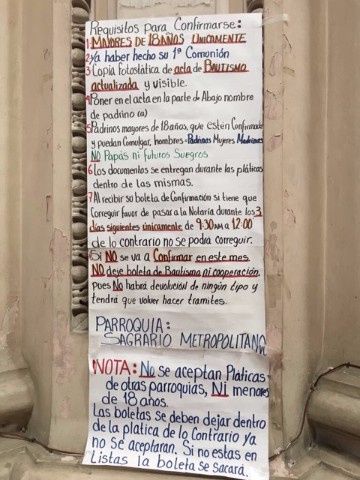 Requisitos para Confirmarse:
1 MAYORES DE 18 AÑOS UNICAMENTE
2 Ya haber hecho su 1ª Comunión
3 Copia fotostática de acta de BAUTISMO
actualizada y visible.
4 Poner en el acta en la parte de Abajo nombre
de padrino (a)
5 Padrinos mayores de 18 años, que estén Confirmados
y puedan Comulgar, hombres - Padrinos Mujeres Madrinas
NO Papás ni futuros Suegros
6 Los documentos se entregan durante las pláticas
dentro de las mismas.
7 Al recibir su boleta de Confirmación si tiene que
Corregir favor de pasar a la Notaria durante los 3
días siguientes únicamente de 9:30 AM a 12:00
de lo contrario no se podra corregir.
Si NO se va a Confirmar en este mes
NO deje boleta de Bautismo ni cooperación,
pues NO habrá devolución de ningún tipo y
tendrá que volver hacer tramites.
PARROQUIA:
SAGRARIO METROPOLITANO
NOTA: No se aceptan Platicas
de otras parroquias, NI menores
de 18 años.
Las boletas se deben dejar dentro
de la platica de lo Contrario ya
no se aceptaran. Si no estas en
Listas la boleta se sacará.